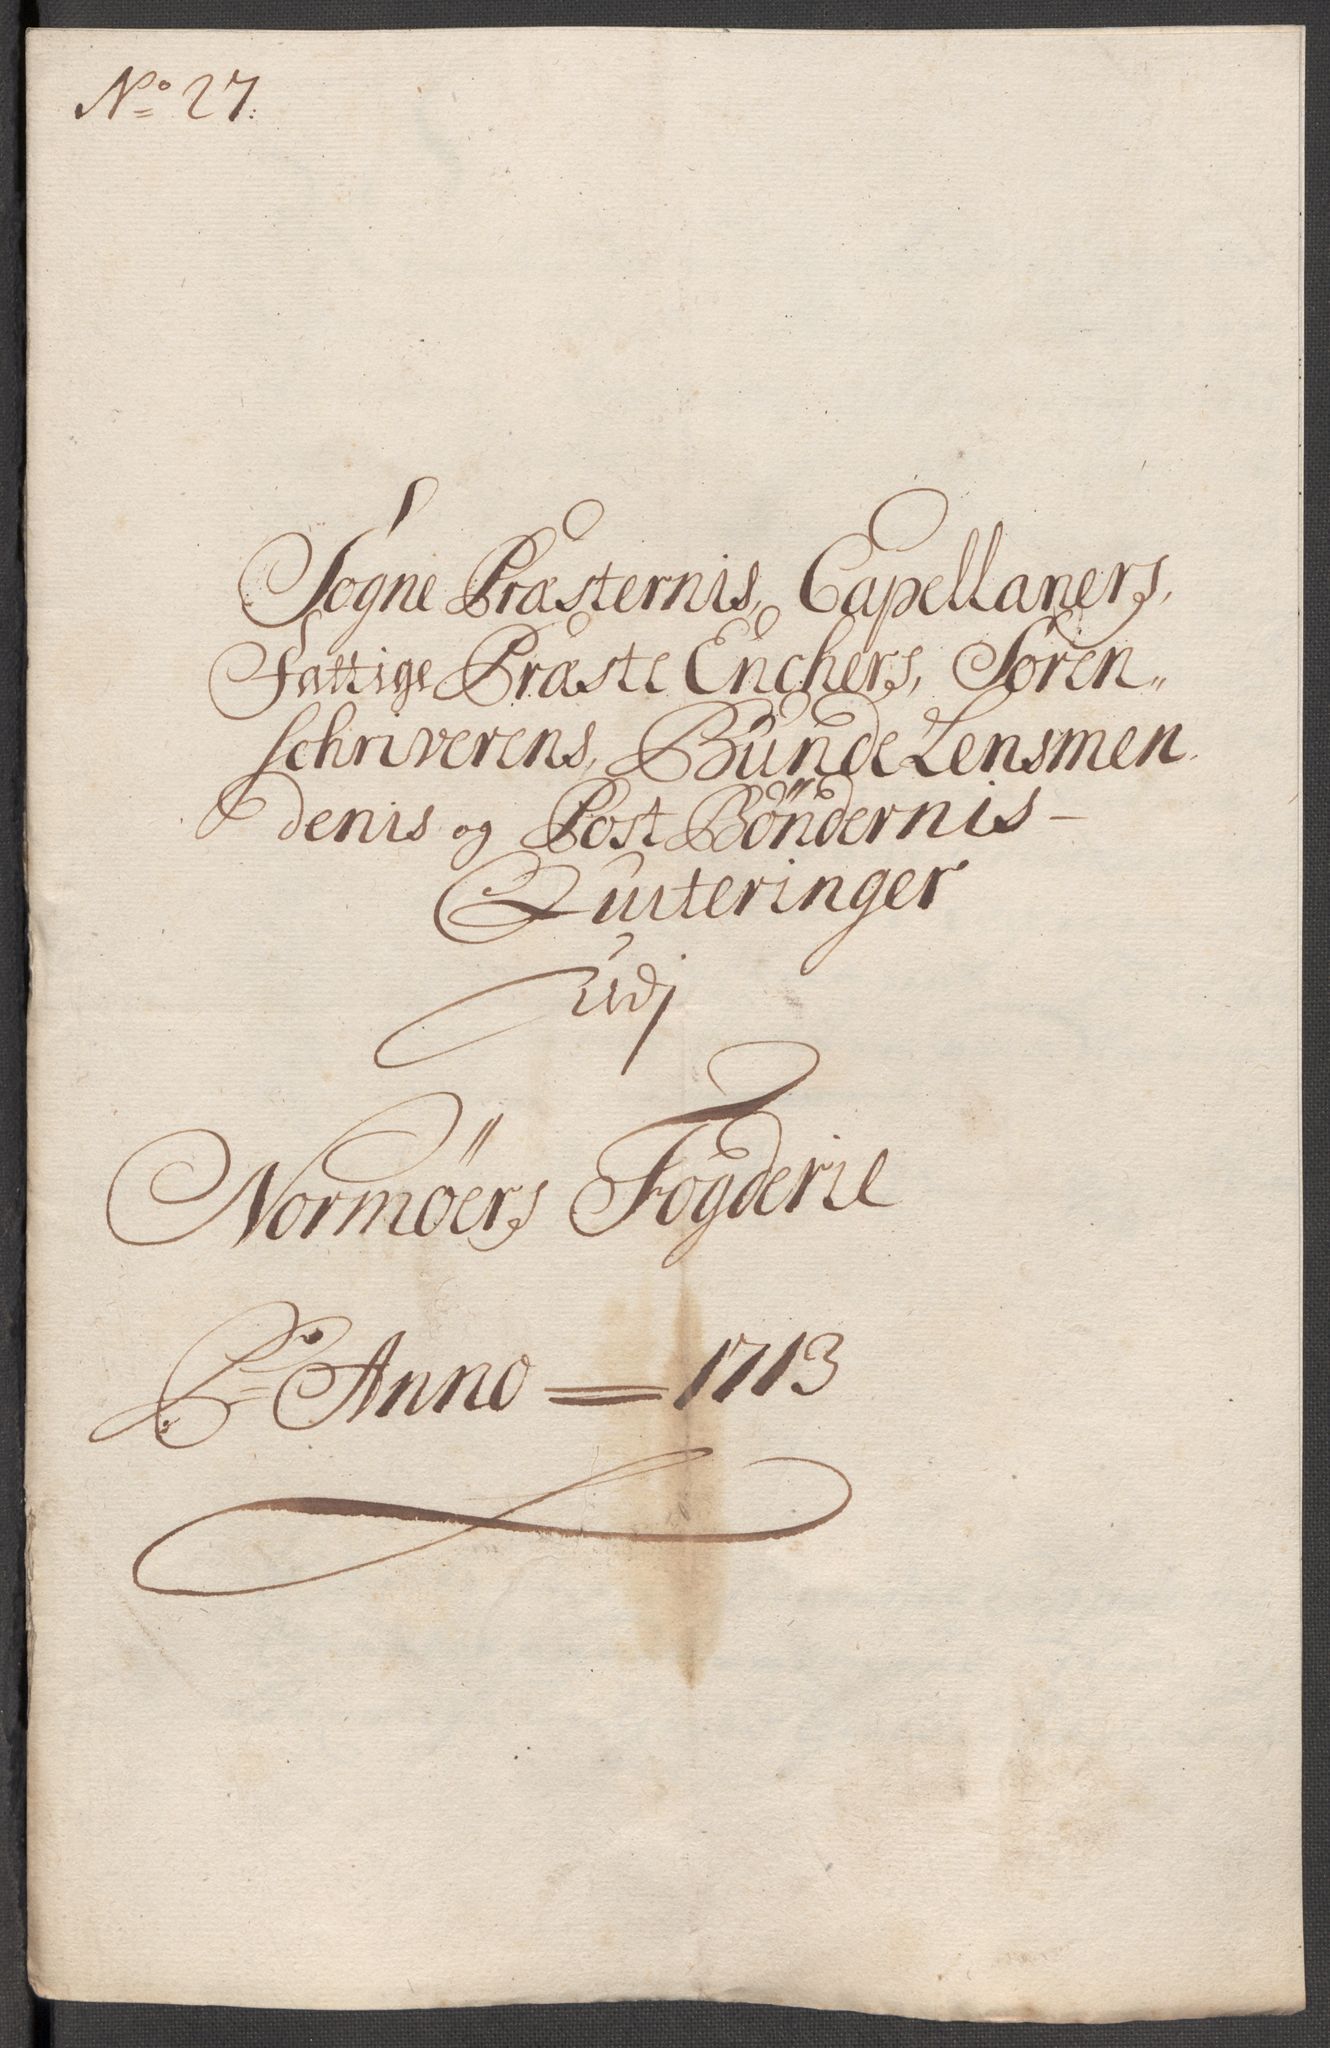 No 27:
Sogne Præsternis, Capellaners,
Fattige Præste Enchers, Soren„
schriverens, Bunde Lensmen
denis og Post Böndernis –
Quiteringer
Udj
Normöers Fogderie
Pr Anno = 1713